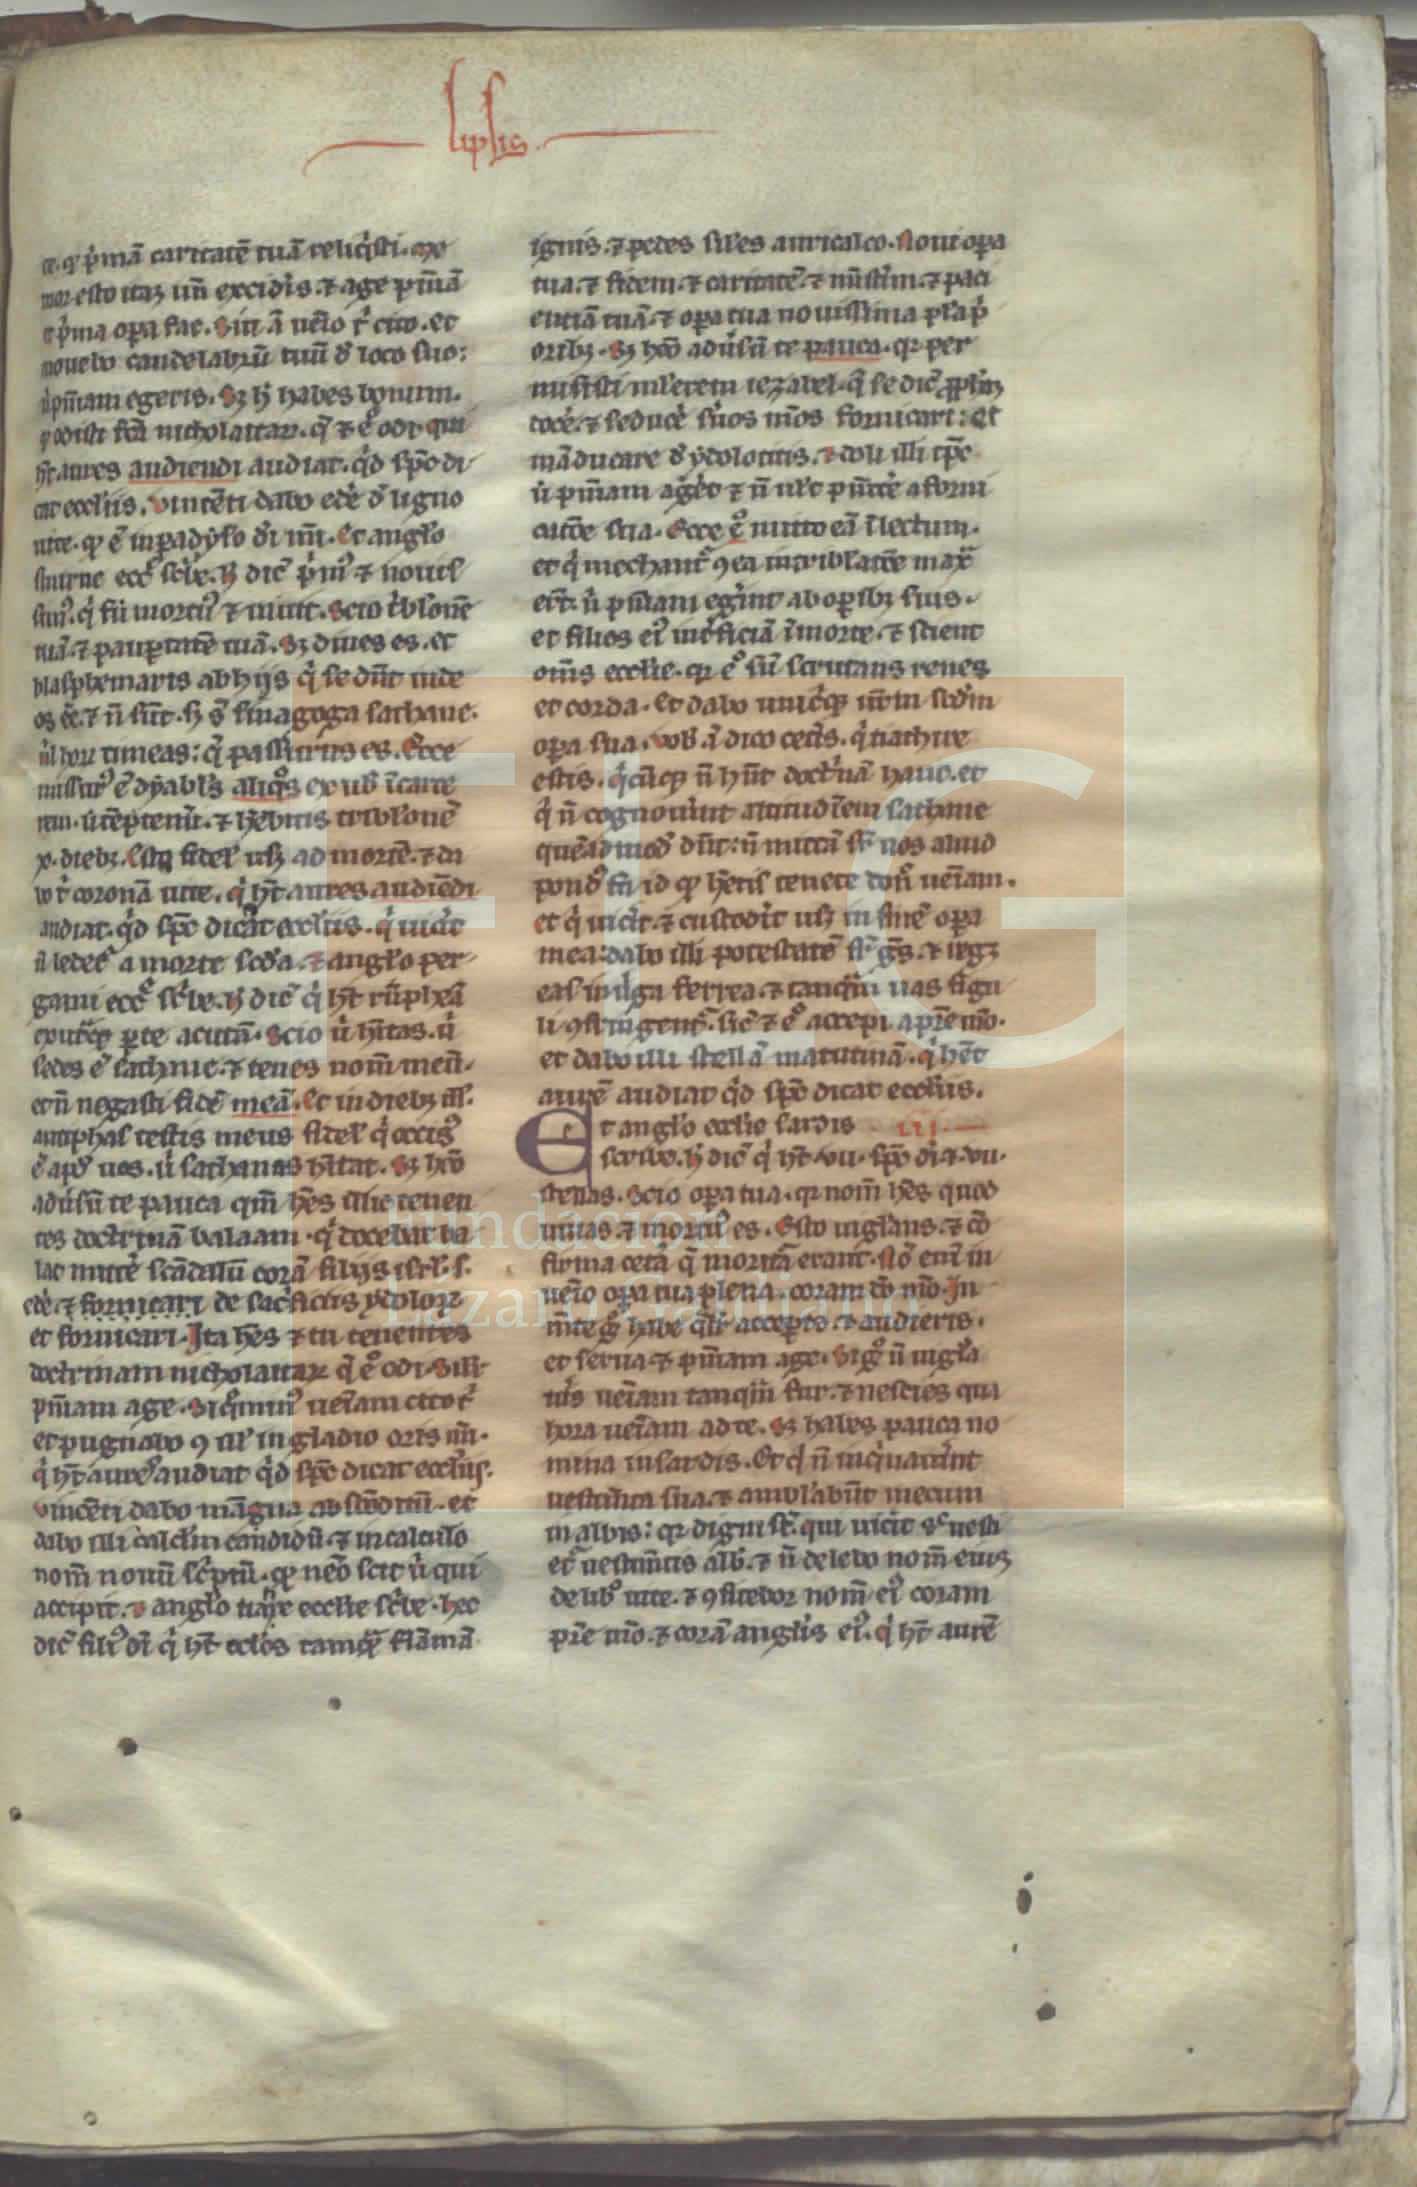 lipsis
te. qͥ p̾mā caritatē tuā reliq̾sti. Me
mor esto itaq; un̄ excid̾is. ⁊ age p̄niā
⁊ p̾ma opa fac. Sin ā uēio t̾ cito. et
mouebo candelabrū tuū d̾ loco suo:
n̾ p̄niam egeris. Sꝫ h̾ habes bonum.
q̾ odisti fc̄a nicholaitaꝝ. q̄ ⁊ eº odi. qui
h̄t aures audiendi audiat. q̾d sp̄c di
cat eccl̾iis. Vincēti dabo ed̾e d̾ ligno
uite. qͩ ē in padyso d̾i m̄i. Et anglo
smirne ecc̾ sc̾be. h̾ dic̄ p̾mꝰ ⁊ nouis
simꝰ. q̾ fuͥ mortuꝰ ⁊ uiuit. Scio t̾bl̾onē
tuā. ⁊ paup̱tatē tuā. sꝫ diues es. et
blasphemaris ab hijs q̾ se dn̄t iude
os ēē. ⁊ n̄ sūt. sꝫ s̄ sinagoga sathane.
n̾l hoꝝ timeas: q̄ passurus es. Ecce
missurꝰ ē dyabl̾s aliqͦs ex uob̾ ī carce
rem. ut tēptem̾. ⁊ h̾ebitis tribl̾onē
x. dieb;. Esto fidel̾ usq; ad mortē. ⁊ da
bo t̾ coronā uite. q̾ h̄t aures audiēdi
audiat. q̾d sp̄c dicat eccl̾iis. q̾ uic̾it
n̄ ledet̾ a morte sc̄da. ⁊ anglo per
gami ecc̾ sc̾be. h̾ dic̄ q̾ h̄t rūpheā
ex utraq; pte acutā. Scio u̾ h̾itas. u̾
sedes ē sathane. ⁊ tenes nom̄ meū.
et n̄ negasti fidē meā. Et in dieb; ill̾.
antiphas testis meus fidel̾ q̾ occisꝰ
ē apd̾ uos. u̾ sathanas h̾itat. Sꝫ h̾eo
adu̾sū te pauca qm̄ h̄es illic tenen
tes doctrinā balaam. q̾ docebat ba
lac mitt̾e scādalū corā filijs isrl̾.
ed̾e. ⁊ fornicari de sac̾ficiis ydoloꝝ
et fornicari. Ita h̄es ⁊ tu tenentes
doctrinam nicholaitaꝝ q̄ eº odi. Sil̾r
p̄niam age. Si qͦminꝰ ueīam cito t̾
et pugnabo ꝯ ill̾ in gladio oris m̄i.
q̾ h̄t aures audiat q̾d sp̄c dicat eccl̾iis.
Vincēti dabo māgna abscōditū. et
dabo illi calcl̾m candidū. ⁊ in calculo
nom̄ nouū sc̾ptū. qͩ nēo scit n̾ qui
accipit. ⁊ anglo tiatire eccl̾ie sc̾be. hec
dic̄ filiꝰ d̾i q̾ h̄t ocl̾os tamq̄ flāmā
ignis. ⁊ pedes sil̾es auricalco. Noui opa
tua. ⁊ fidem. ⁊ caritatē. ⁊ mīst̾im. ⁊ paci
entiā tuā. ⁊ opa tua nouissima pl̾a p̾
orib;. Sꝫ h̾eo adu̾sū te pauca. qꝛ per
misisti ml̾ierem iezabel. q̄ se dic̄ ꝓphm̄
doc̾e. ⁊ seduc̾e s̾uos m̄os fornicari: Et
māducare d̾ ydolotitis. ⁊ dedi illi tp̄c
u̾ p̄niam ag̾et ⁊ n̄ uult pen̄it̾e a forni
catōe sua. Ecce eº mitto eā ī lectum.
et q̾ mechant̾ ꝯ ea in tribl̾atōe max̄
er̄t. n̾ p̄niam eg̾int ab op̱ib; suis.
et filios eiꝰ int̾ficiā ī morte. ⁊ scient
om̄s eccl̾ie. qꝛ eº sū scrutans renes
et corda. Et dabo unicuiq; ur̄m scd̄m
opa sua. Vob̾ ā dico cet̾is. q̾ tiathire
estis. q̾cūq; n̄ h̄nt doct̾nā hanc. et
q̾ n̄ cognou̾int altitudīem sathane
quēadmod̾ dn̄t: n̄ mittā sr̄ uos aliud
pond̾ tn̄ id qͩ h̾etis tenete don̄ ueīam.
et q̾ uic̾it. ⁊ custodi̾t usq; in finē opa
mea: dabo illi potestatē sr̄ ge̾s. ⁊ reg;
eas in u̾ga ferrea. ⁊ tanq̄m uas figu
li ꝯfringent̾. sic̄ ⁊ eº accepi a pr̄e m̄o.
et dabo illi stellā matutinā. q̾ h̾et
aurē audiat q̾d sp̄c dicat eccl̾iis.
Et anglo eccl̾ie sardis III
scribe. h̾ dic̄ q̾ h̄t .vii. sp̄c d̾i ⁊ .vii.
stellas. Scio opa tua. qꝛ nom̄ h̄es quod
uiuas. ⁊ mortuꝰ es. Esto uiglans. ⁊ cō
firma cet̾a q̄ moritura erant. Nō enī in
uēio opa tua plena. coram d̾o m̄o. In
m̄te g̾ habe qͣl̾r acceperis. ⁊ audieris.
et serua. ⁊ p̄niam age. Si g̾ n̄ uigla
u̾is ueīam tanq̄m fur. ⁊ nescies qua
hora ueīam ad te. Sꝫ habes pauca no
mina in sardis. Et q̾ n̄ inq̾nau̾int
uestim̄ta sua. ⁊ ambl̾abūt mecum
in albis: qꝛ digni st̄. qui uic̾it sͨ uesti
et̾ uestim̄tis alb̾. ⁊ n̄ delebo nom̄ eius
de lib̾o uite. ⁊ ꝯfitebor nom̄ eiꝰ coram
pr̄e m̄o. ⁊ corā angl̾is eiꝰ. q̾ h̄t aurē
FLG
Fundación
Lázaro Galdiano